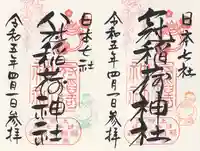 日本七社
稲荷神社
令和五年四月一日参拝
日本七社
稲荷神社
令和五年四月一日参拝